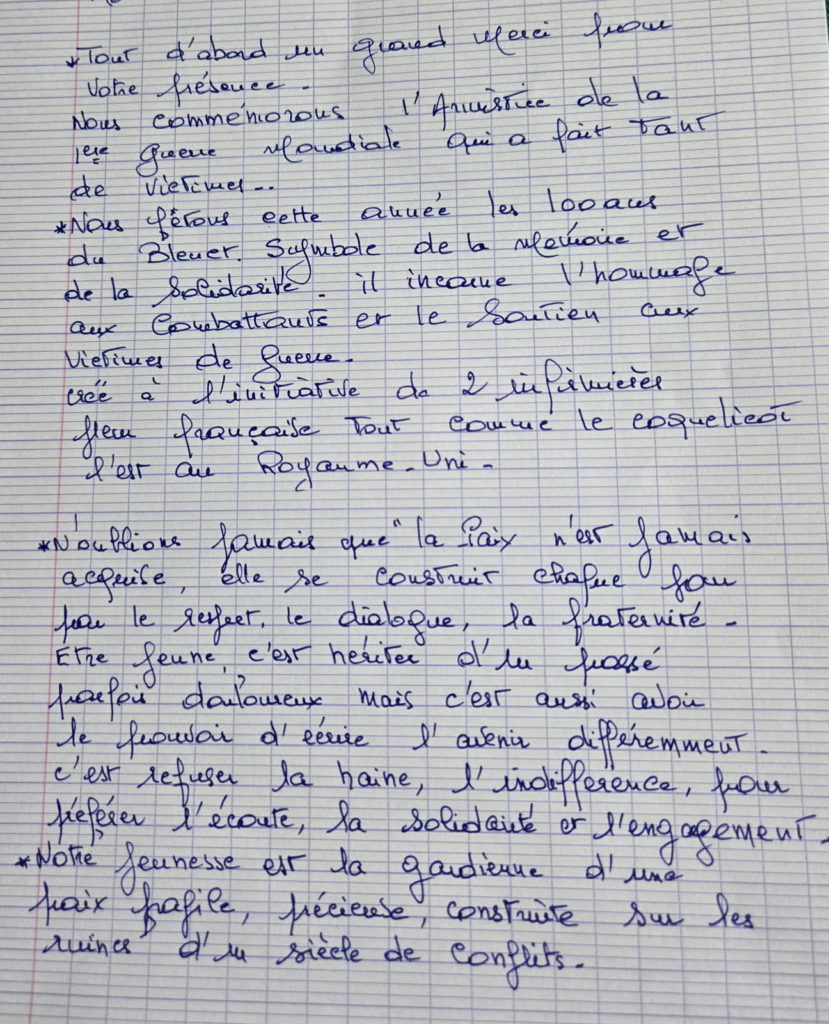 *Tout d'abord un grand Merci pour
Votre présence.
Nous commémorons l'Armistice de la
1ère guerre Mondiale qui a fait tant
de victimes..
*Nous fêtons cette année les 100 ans
du Bleuet. Symbole de la Mémoire et
de la Solidarité. il incarne l'hommage
aux Combattants et le Soutien aux
Victimes de guerre.
créé à l'initiative de 2 infirmières
fleur française tout comme le coquelicot
l'est au Royaume-Uni.
*N'oublions jamais que "la Paix n'est jamais
acquise, elle se construit chaque jour
par le respect, le dialogue, la fraternité.
Etre jeune, c'est hériter d'un passé
parfois douloureux mais c'est aussi avoir
le pouvoir d'écrire l'avenir différemment.
c'est refuser la haine, l'indifférence, pour
préférer l'écoute, la solidarité et l'engagement.
*Notre jeunesse est la gardienne d'une
paix fragile, précieuse, construite sur les
ruines d'un siècle de conflits.